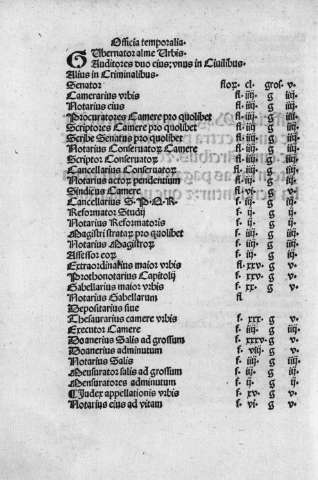 Officia temporalia.
Gubernator alme Urbis.
Auditores duo eius; vnus in Ciuilibus.
Alius in Criminalibus.
Senator floꝝ. cl. gros. v.
Camerarius vrbis fl. iiij. g iiij.
Notarius eius fl. iiij. g iiij.
Procuratores Camere pro quolibet fl. iiij. g iiij.
Scriptores Camere pro quolibet fl. iiij. g iiij.
Scribe Senatus pro quolibet fl. iiij. g iiij.
Notarius Conseruatoꝝ Camere fl. iiij. g iiij.
Scriptor Conseruatoꝝ fl. iiij. g iiij.
Cancellarius Conseruatoꝝ fl. iiij. g iiij.
Notarius actoꝝ pendentium fl. iiij. g iiij.
Sindicus Camere fl. vi. g v.
Cancellarius S. P. Q. R. f. iij. g v.
Reformator Studij f. ij. g ij.
Notarius Reformatoris f. ij. g ij.
Magistri strataꝝ pro quolibet f. iiij. g iiij.
Notarius Magistroꝝ f. iiij. g iiij.
Assessor eoꝝ f. iij. g iij.
Extraordinarius maior vrbis fl. xxv. g v.
Prothonotarius Capitolij f. xx. g v.
Gabellarius maior vrbis f. xv. g v.
Notarius Gabellarum fl.
Depositarius siue
Thesaurarius camere vrbis f. xxx. g v.
Executor Camere f. iiij. g iiij.
Doanerius Salis ad grossum f. xxxv. g v.
Doanerius adminutum f. viij. g v.
Notarius Salis f. iiij. g iiij.
Mensurator salis ad grossum f. iij. g iij.
Mensuratores adminutum f. ij. g ij.
Iudex appellationis vrbis f. xv. g v.
Notarius eius ad vitam f. vi. g v.